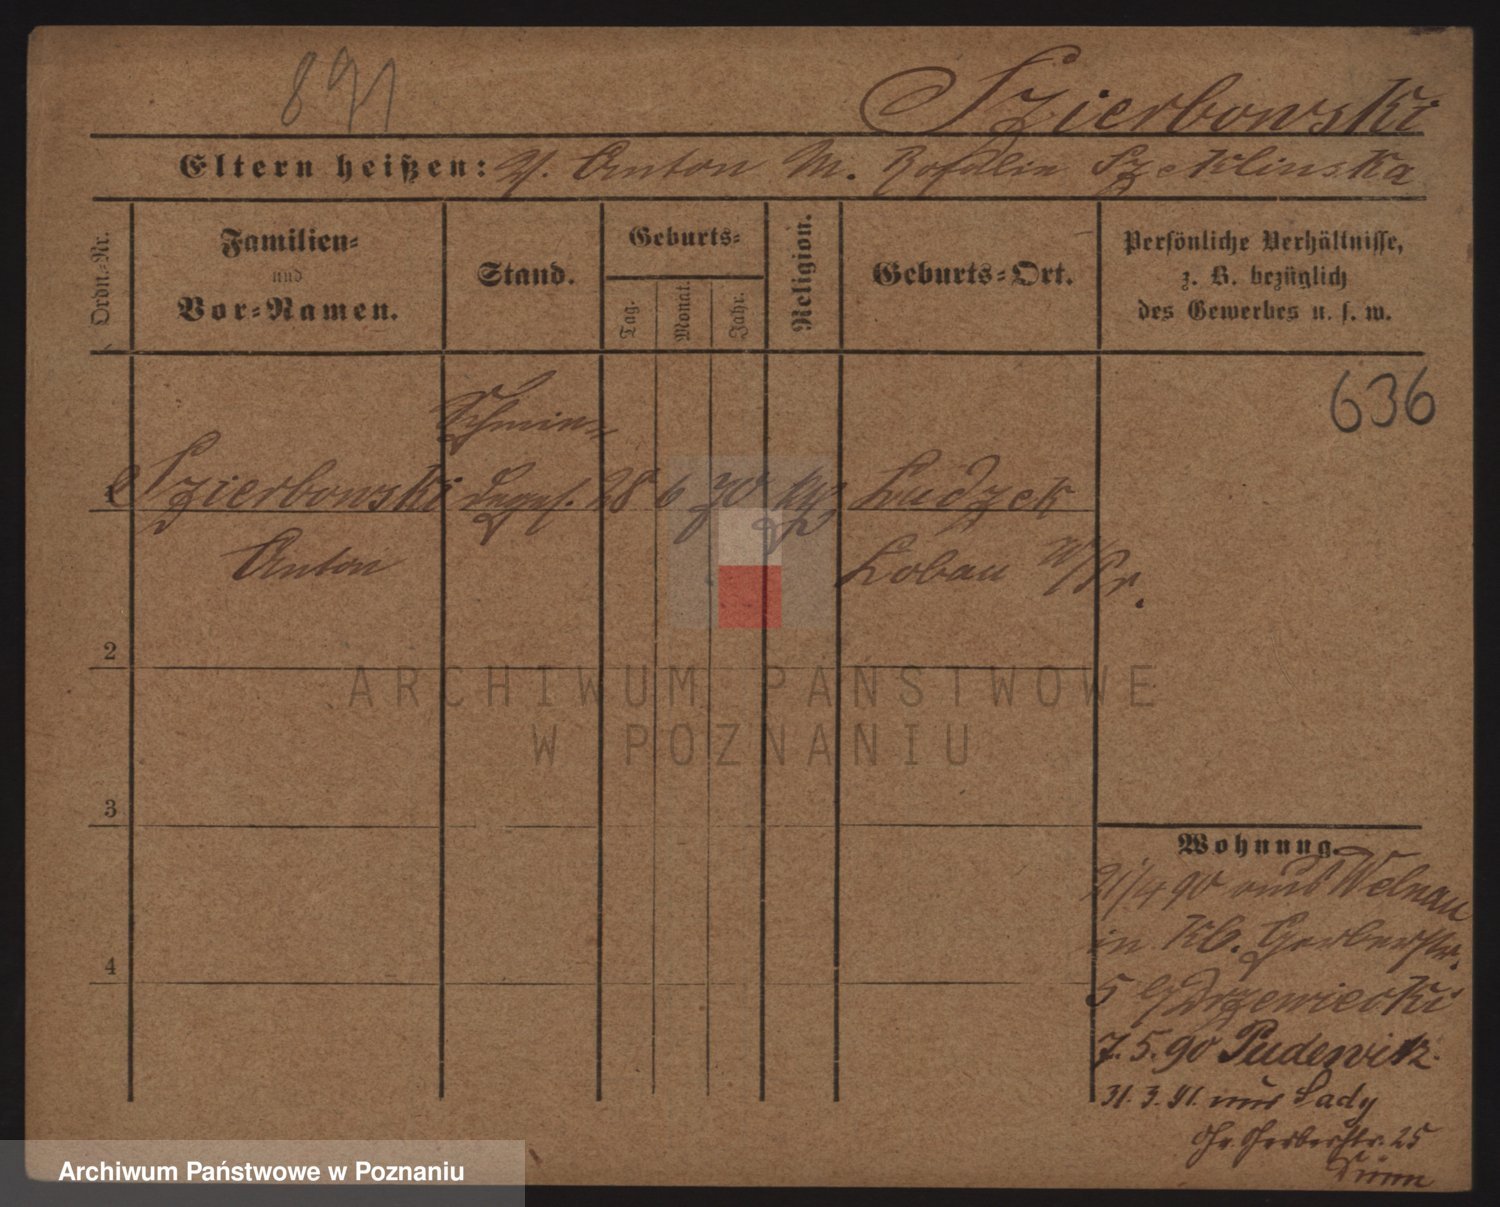 891
Szierbowski
Eltern heißen: V. Anton M. Rosalie Szeklinska
Ordn.-Nr.
Familien-
und
Vor-Namen.
Stand.
Geburts-
Tag.
Monat.
Jahr.
Religion.
Geburts-Ort.
Persönliche Verhältnisse,
z. B. bezüglich
des Gewerbes u. s. w.
636
Schmie-
1 Szierbowski degef. 28 6 70 kth Ludzek
Anton Lobau W/Pr.
2
3
4
Wohnung.
21/4 90 aus Welnau
in Kl. Gerberstr.
5 Drzewiecki
7. 5. 90 Pudewitz.
31. 3. 91. aus Lady
Gr. Gerberstr. 25
ARCHIWUM PAŃSTWOWE
W POZNANIU
Archiwum Państwowe w Poznaniu